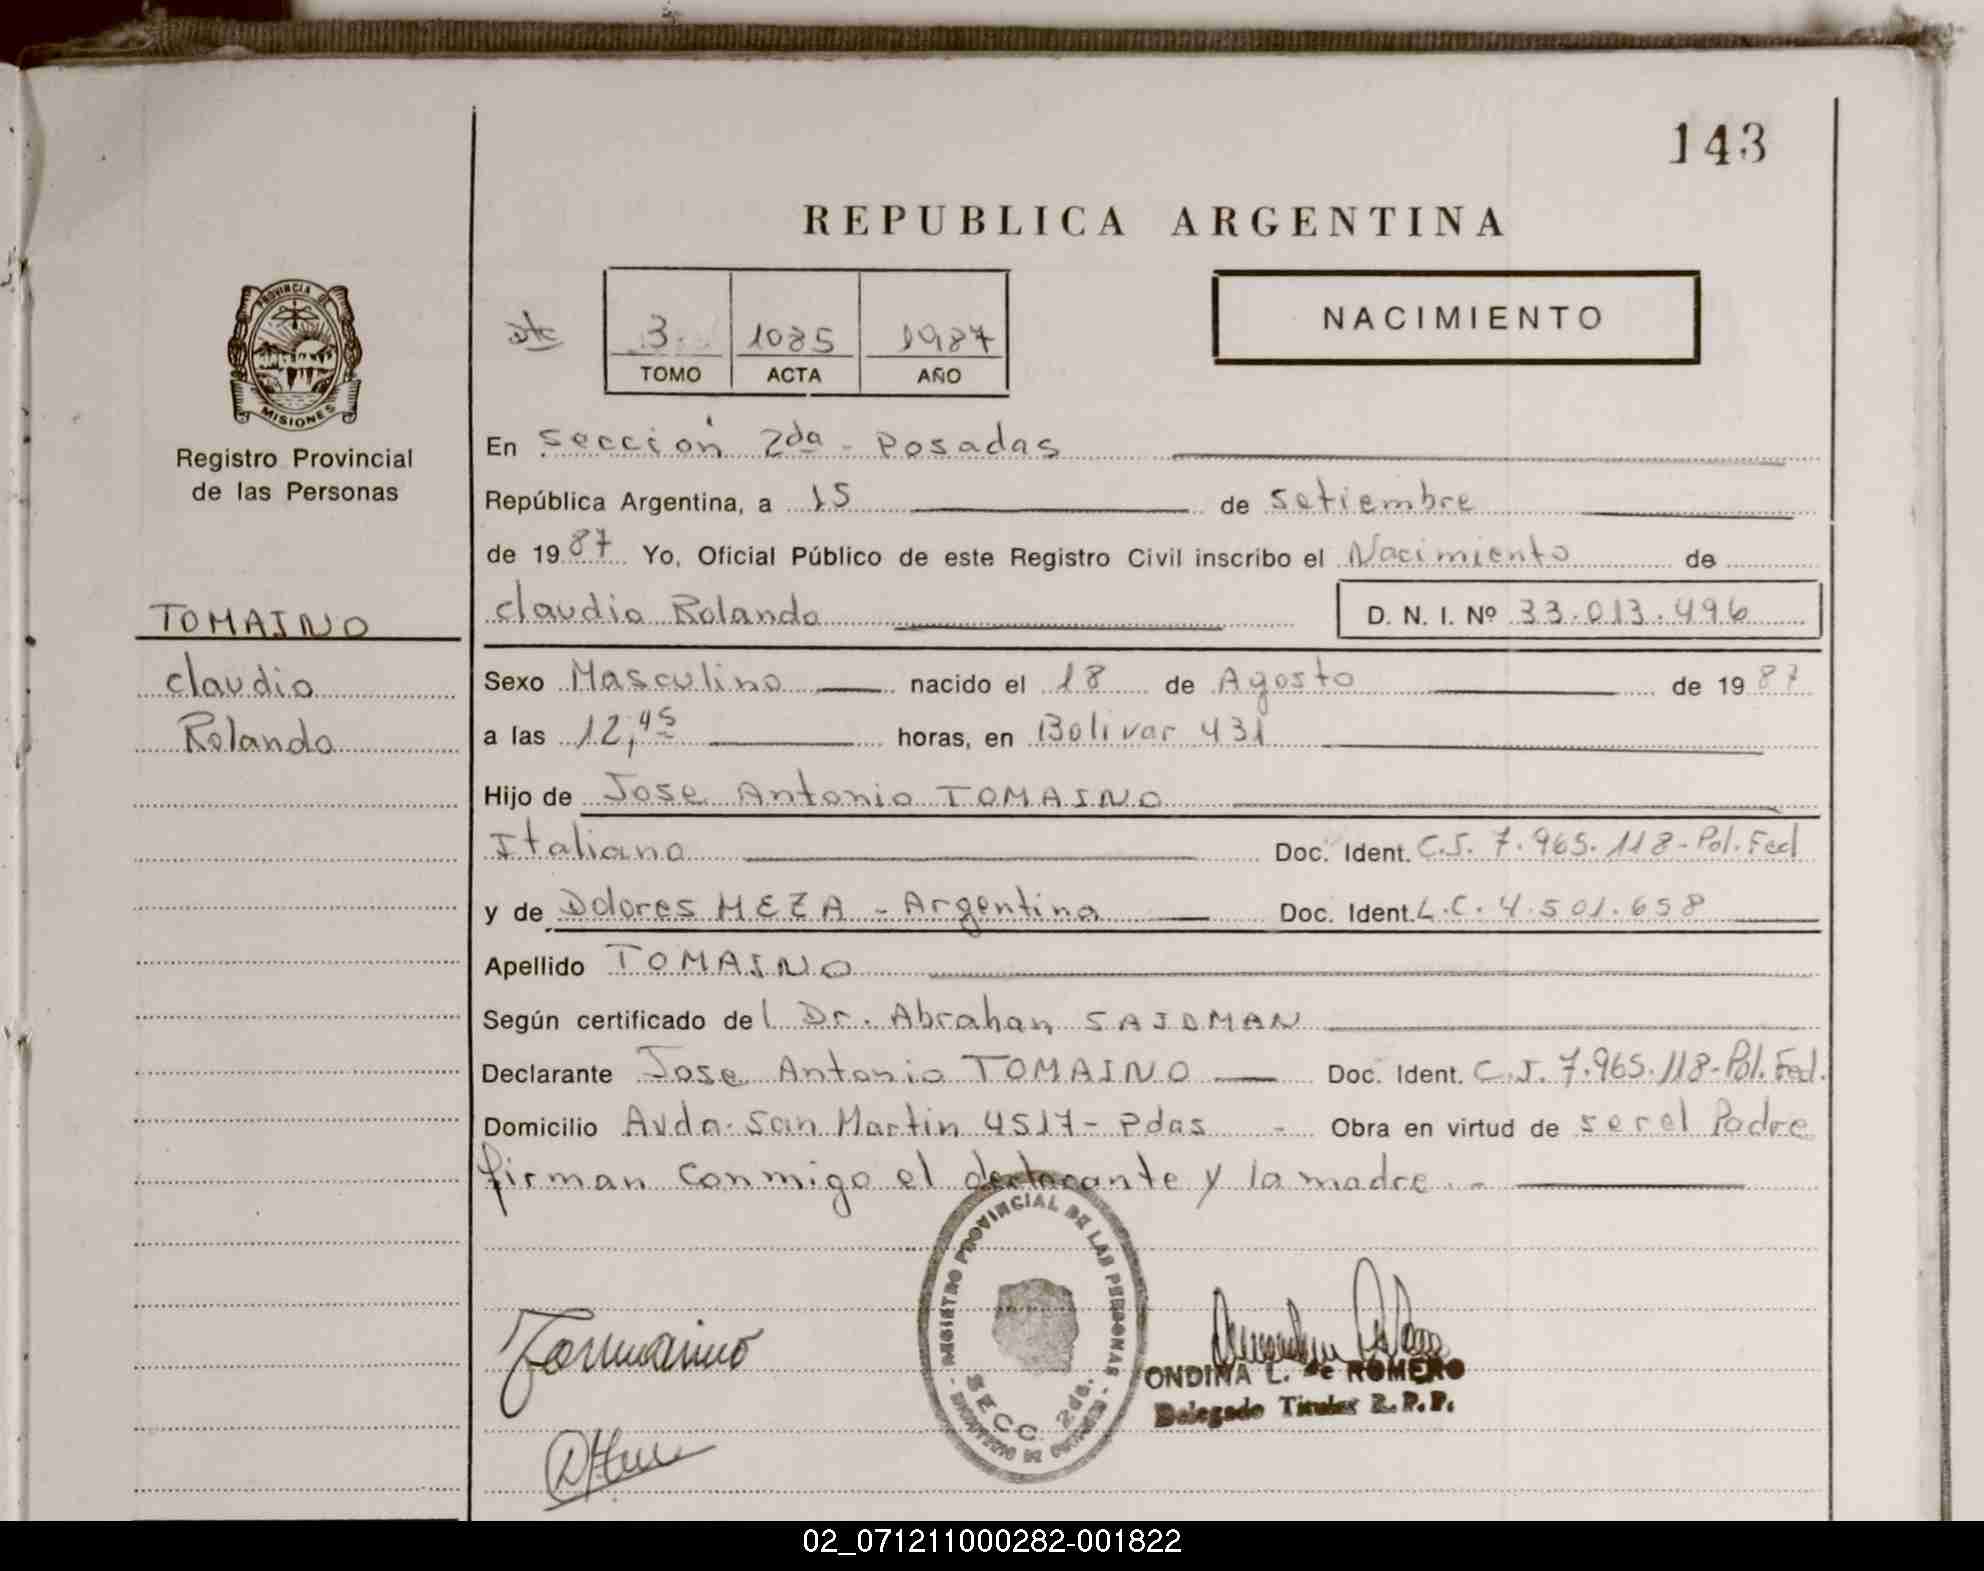 143
REPUBLICA ARGENTINA
PROVINCIA DE
MISIONES
Registro Provincial
de las Personas
3
1085
1987
TOMO
ACTA
AÑO
NACIMIENTO
En Sección 2da - Posadas
República Argentina, a 15 de Setiembre
de 1987 Yo, Oficial Público de este Registro Civil inscribo el Nacimiento de
claudio Rolando D. N. I. Nº 33.013.496
TOMAINO
claudio
Rolando
Sexo Masculino nacido el 18 de Agosto de 1987
a las 12,45 horas, en Bolivar 431
Hijo de Jose Antonio TOMAINO
Italiano Doc. Ident. C.I. 7.965.118-Pol.Fed
y de Dolores MEZA - Argentina Doc. Ident. L.C. 4.501.658
Apellido TOMAINO
Según certificado del Dr. Abrahan SAIDMAN
Declarante Jose Antonio TOMAINO Doc. Ident. C.I. 7.965.118-Pol.Fed.
Domicilio Avda. San Martin 4517- Pdas - Obra en virtud de ser el Padre
firman conmigo el declarante y la madre.-
REGISTRO PROVINCIAL DE LAS PERSONAS
SECC. 2da.
Tomaino
ONDINA L. de ROMERO
Delegado Titular R.P.P.
02_071211000282-001822